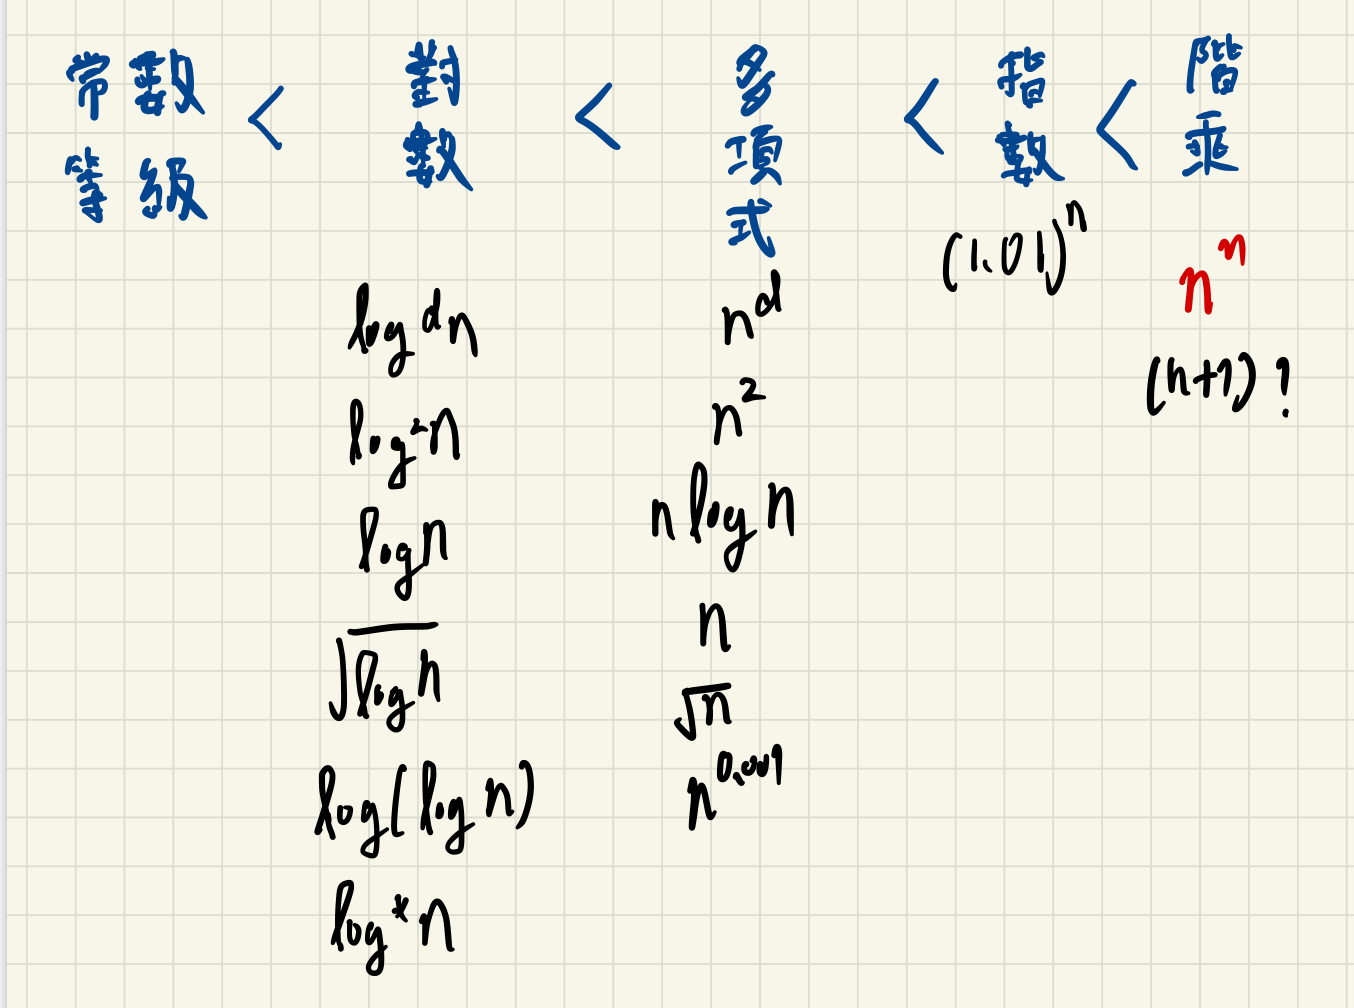 常數等級 < 對數 < 多項式 < 指數 < 階乘
log^d n
log² n
log n
√(log n)
log(log n)
log* n
n^d
n²
n log n
n
√n
n^0.001
(1.01)^n
n^n
(n+1)!